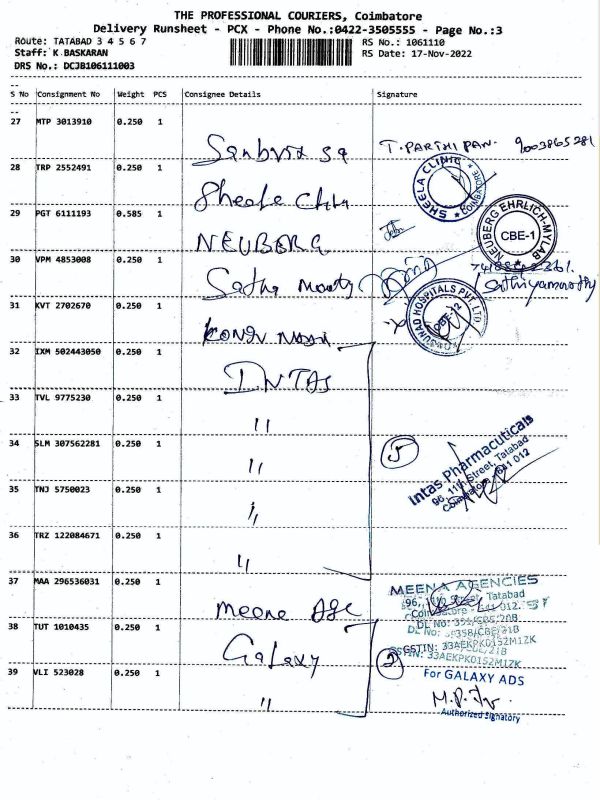 THE PROFESSIONAL COURIERS, Coimbatore
Delivery Runsheet - PCX - Phone No.:0422-3505555 - Page No.:3
Route: TATABAD 3 4 5 6 7
RS No.: 1061110
Staff: K BASKARAN
RS Date: 17-Nov-2022
DRS No.: DCJB106111003
S No Consignment No Weight PCS Consignee Details Signature
27 MTP 3013910 0.250 1
T. PARTHIPAN. 9003865281
28 TRP 2552491 0.250 1
SHEELA CLINIC
29 PGT 6111193 0.585 1
NEUBERG
NEUBERG EHRLICH-MYLAB
CBE-1
30 VPM 4853008 0.250 1
Sathya moorthy
31 KVT 2702670 0.250 1
HOSPITALS PVT. LTD
CBE-12
32 IXM 502443050 0.250 1
INTAS
33 TVL 9775230 0.250 1
"
34 SLM 307562281 0.250 1
"
5
Intas Pharmaceuticals
96, 11th Street, Tatabad
Coimbatore - 641 012
35 TNJ 5750023 0.250 1
"
36 TRZ 122084671 0.250 1
"
37 MAA 296536031 0.250 1
Meena Age
MEENA AGENCIES
96, 11th Street, Tatabad
Coimbatore - 641 012.
38 TUT 1010435 0.250 1
Galaxy
2
GSTIN: 33AEKPK0152M1ZK
39 VLI 523028 0.250 1
"
For GALAXY ADS
Authorized Signatory